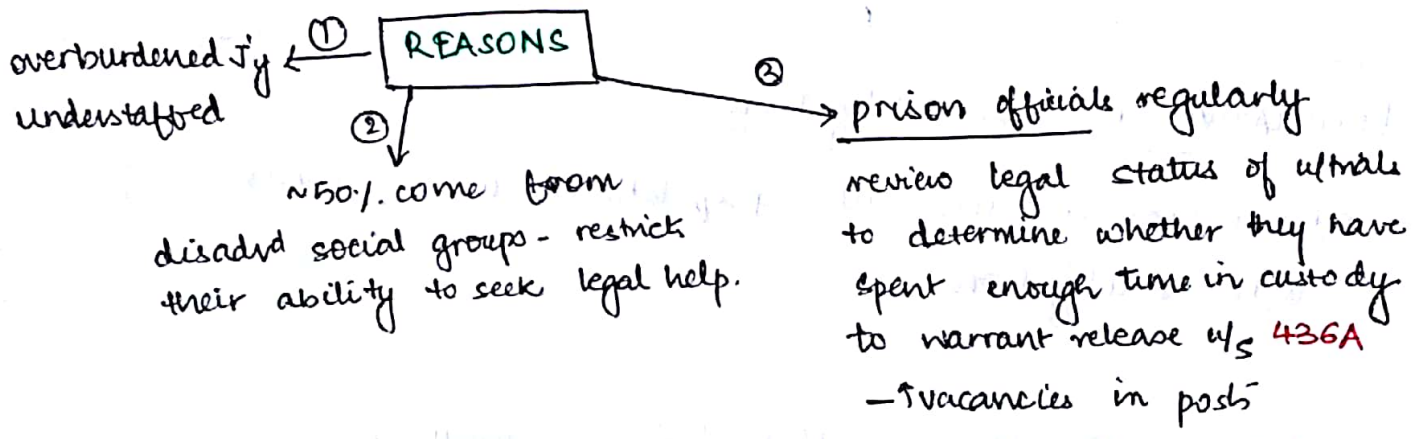 REASONS
①
overburdened J'y
understaffed
②
~50%. come from
disadvd social groups - restrick
their ability to seek legal help.
③
prison officials regularly
review legal status of u/trials
to determine whether they have
spent enough time in custody
to warrant release u/s 436A
- ↑vacancies in posts